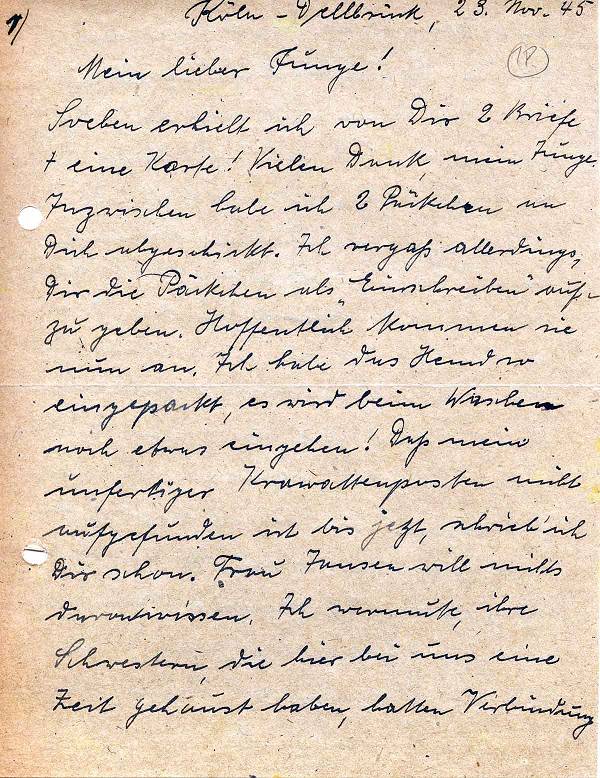 1)
Köln-Dellbrück, 23. Nov. 45
18.
Mein lieber Junge!
Soeben erhielt ich von Dir 2 Briefe
+ eine Karte! Vielen Dank, mein Junge.
Inzwischen habe ich 2 Päckchen an
Dich abgeschickt. Ich vergaß allerdings,
Dir die Päckchen als "Einschreiben" auf-
zu geben. Hoffentlich kommen sie
nun an. Ich habe das Hemd so
eingepackt, es wird beim Waschen
noch etwas eingehen! Daß mein
unfertiger Krawattenposten nicht
aufgefunden ist bis jetzt, schrieb ich
Dir schon. Frau Jansen will nichts
davon wissen. Ich vermute, ihre
Schwestern, die hier bei uns eine
Zeit gehaust haben, hatten Verbindung